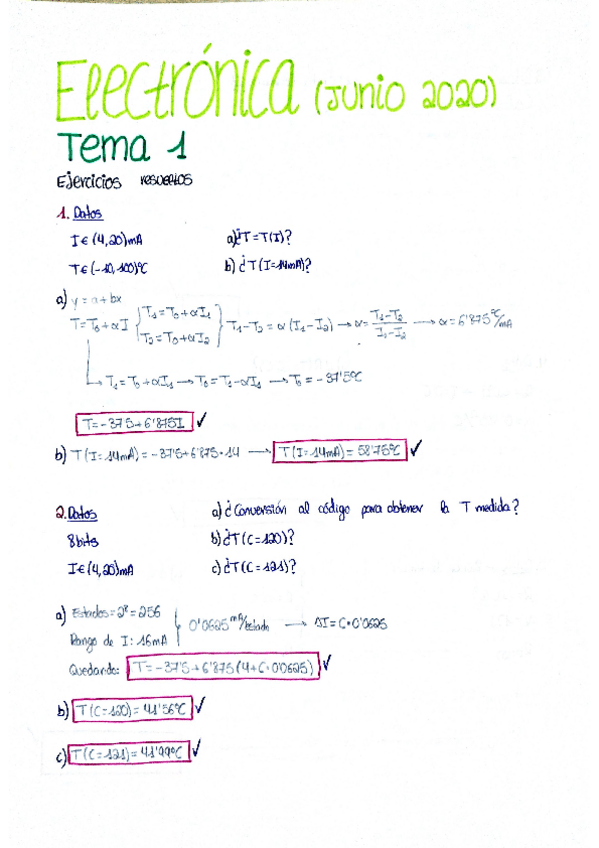 Electrónica (Junio 2020)
Tema 1
Ejercicios resueltos
1. Datos
I ∈ (4,20)mA a)¿T=T(I)?
T ∈ (-10,100)ºC b)¿T(I=14mA)?
a) y = a+bx
T=T₀+αI { T₁=T₀+αI₁ T₂=T₀+αI₂ } T₁-T₂ = α (I₁-I₂) → α = (T₁-T₂)/(I₁-I₂) → α = 6'875 ºC/mA
T₁=T₀+αI₁ → T₀=T₁-αI₁ → T₀ = -37'5ºC
T=-37'5+6'875I ✓
b) T(I=14mA)=-37'5+6'875·14 → T(I=14mA)=58'75ºC ✓
2. Datos a)¿Conversión al código para obtener la T medida?
8bits b)¿T(C=120)?
I ∈ (4,20)mA c)¿T(C=121)?
a) Estados=2⁸=256
Rango de I: 16mA } 0'0625 mA/estado → ΔI=C·0'0625
Quedando: T=-37'5+6'875(4+C·0'0625) ✓
b) T(C=120)=41'56ºC ✓
c) T(C=121)=41'99ºC ✓